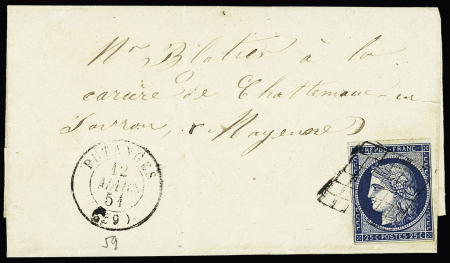 Mr Blatier à la
carure de Chattemoue-en-
Javron, Mayenne
PUTANGES
12
51
(59)
59
REPUB. FRANC
25 C POSTES 25 C